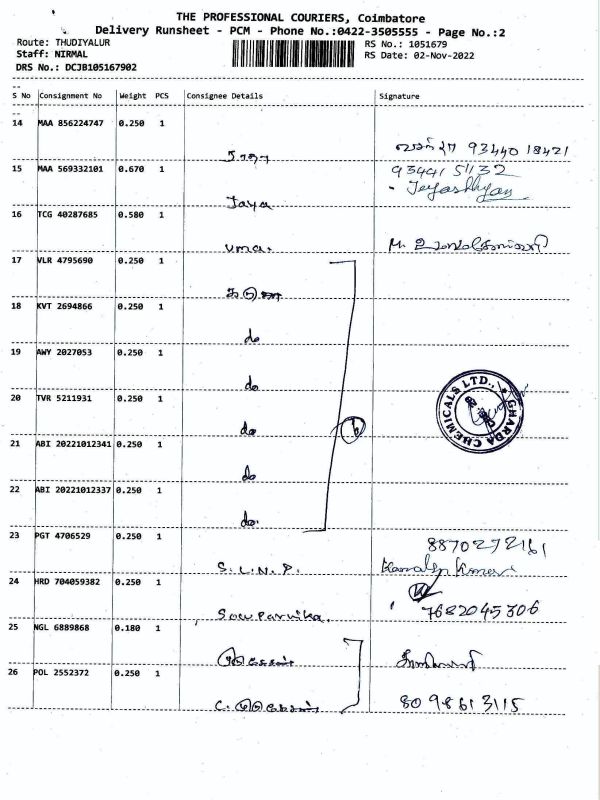 THE PROFESSIONAL COURIERS, Coimbatore
Delivery Runsheet - PCM - Phone No.:0422-3505555 - Page No.:2
Route: THUDIYALUR
Staff: NIRMAL
DRS No.: DCJB105167902
RS No.: 1051679
RS Date: 02-Nov-2022
S No Consignment No Weight PCS Consignee Details Signature
14 MAA 856224747 0.250 1
ராதா 93440 18421
15 MAA 569332101 0.670 1 93441 51132
Jaya Jeyashyan
16 TCG 40287685 0.580 1
uma. M.
17 VLR 4795690 0.250 1
18 KVT 2694866 0.250 1
do
19 AWY 2027053 0.250 1
do
20 TVR 5211931 0.250 1
do
6
GHARDA CHEMICALS LTD.,
21 ABI 20221012341 0.250 1
do
22 ABI 20221012337 0.250 1
do.
23 PGT 4706529 0.250 1 8870272161
S.L.N.P. Kumar
24 HRD 704059382 0.250 1
Sowparnika. 7682045306
25 NGL 6889868 0.180 1
26 POL 2552372 0.250 1
C. 8098613115